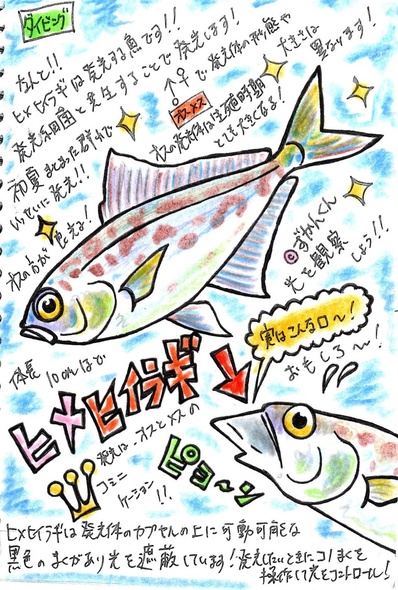 ダイビング
なんと!!
ヒメヒイラギは発光する魚です!!
発光細菌と共生することで発光します!
↑♀で発光体の形態や
大きさは
異なります!
オス・メス
オスの発光体は生殖時期
とても大きくなる!
初夏まとまった群れで
いっせいに発光!!
オスの方が
©ずかんくん
光を観察
しよう!!
体長 10cmほど
ヒメヒイラギ
実はこんな口〜!
おもしろ〜!
発光は、オスとメスの
コミニ
ケーション!!
ピヨ〜ン
ヒメヒイラギは発光体のカプセルの上に可動可能な
黒色のまくがあり光を遮蔽している!発光したいときにコノまくを
操作して光をコントロール!